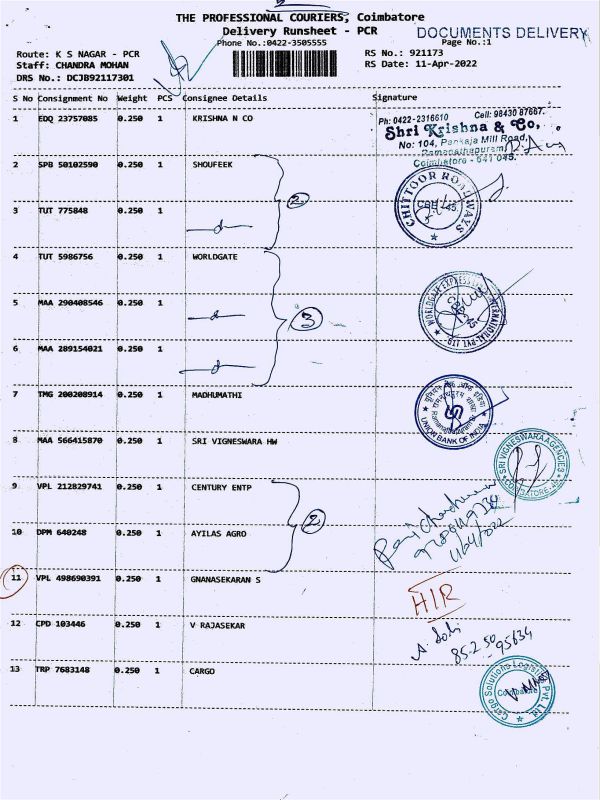 THE PROFESSIONAL COURIERS, Coimbatore
Delivery Runsheet - PCR
DOCUMENTS DELIVERY
Phone No.:0422-3505555
Page No.:1
Route: K S NAGAR - PCR
RS No.: 921173
Staff: CHANDRA MOHAN
RS Date: 11-Apr-2022
DRS No.: DCJB92117301
S No Consignment No Weight PCS Consignee Details Signature
1 EDQ 23757085 0.250 1 KRISHNA N CO
Ph: 0422-2316610 Cell: 98430 87667.
Shri Krishna & Co,
No: 104, Pankaja Mill Road,
Ramanathapuram,
Coimbatore - 641 045.
2 SPB 50102590 0.250 1 SHOUFEEK
CHITTOOR ROADWAYS
CBE-45.
2
3 TUT 775848 0.250 1
4 TUT 5986756 0.250 1 WORLDGATE
5 MAA 290408546 0.250 1
WORLDGATE EXPRESS INTERNATIONAL PVT. LTD.
3
6 MAA 289154021 0.250 1
7 TMG 200208914 0.250 1 MADHUMATHI
UNION BANK OF INDIA
8 MAA 566415870 0.250 1 SRI VIGNESWARA HW
SRI VIGNESWARA AGENCIES
COIMBATORE
9 VPL 212829741 0.250 1 CENTURY ENTP
2
10 DPM 640248 0.250 1 AYILAS AGRO
11/04/2022
11 VPL 498690391 0.250 1 GNANASEKARAN S
HIR
12 CPD 103446 0.250 1 V RAJASEKAR
85-2 50-95634
13 TRP 7683148 0.250 1 CARGO
Cargo Solutions Logistics Pvt. Ltd.
Coimbatore